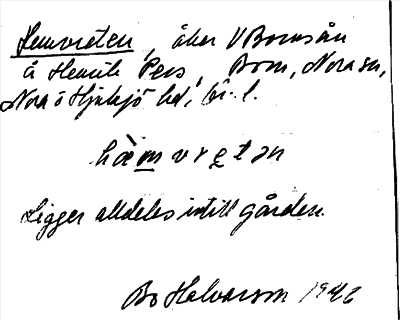 Hemvreten, åker V Bornsån
å Henrik Pers, Born, Nora sn,
Nora o Hjulsjö hd,
hä̀mvretən
Ligger alldeles intill gården.
Bo Halvarson 1942